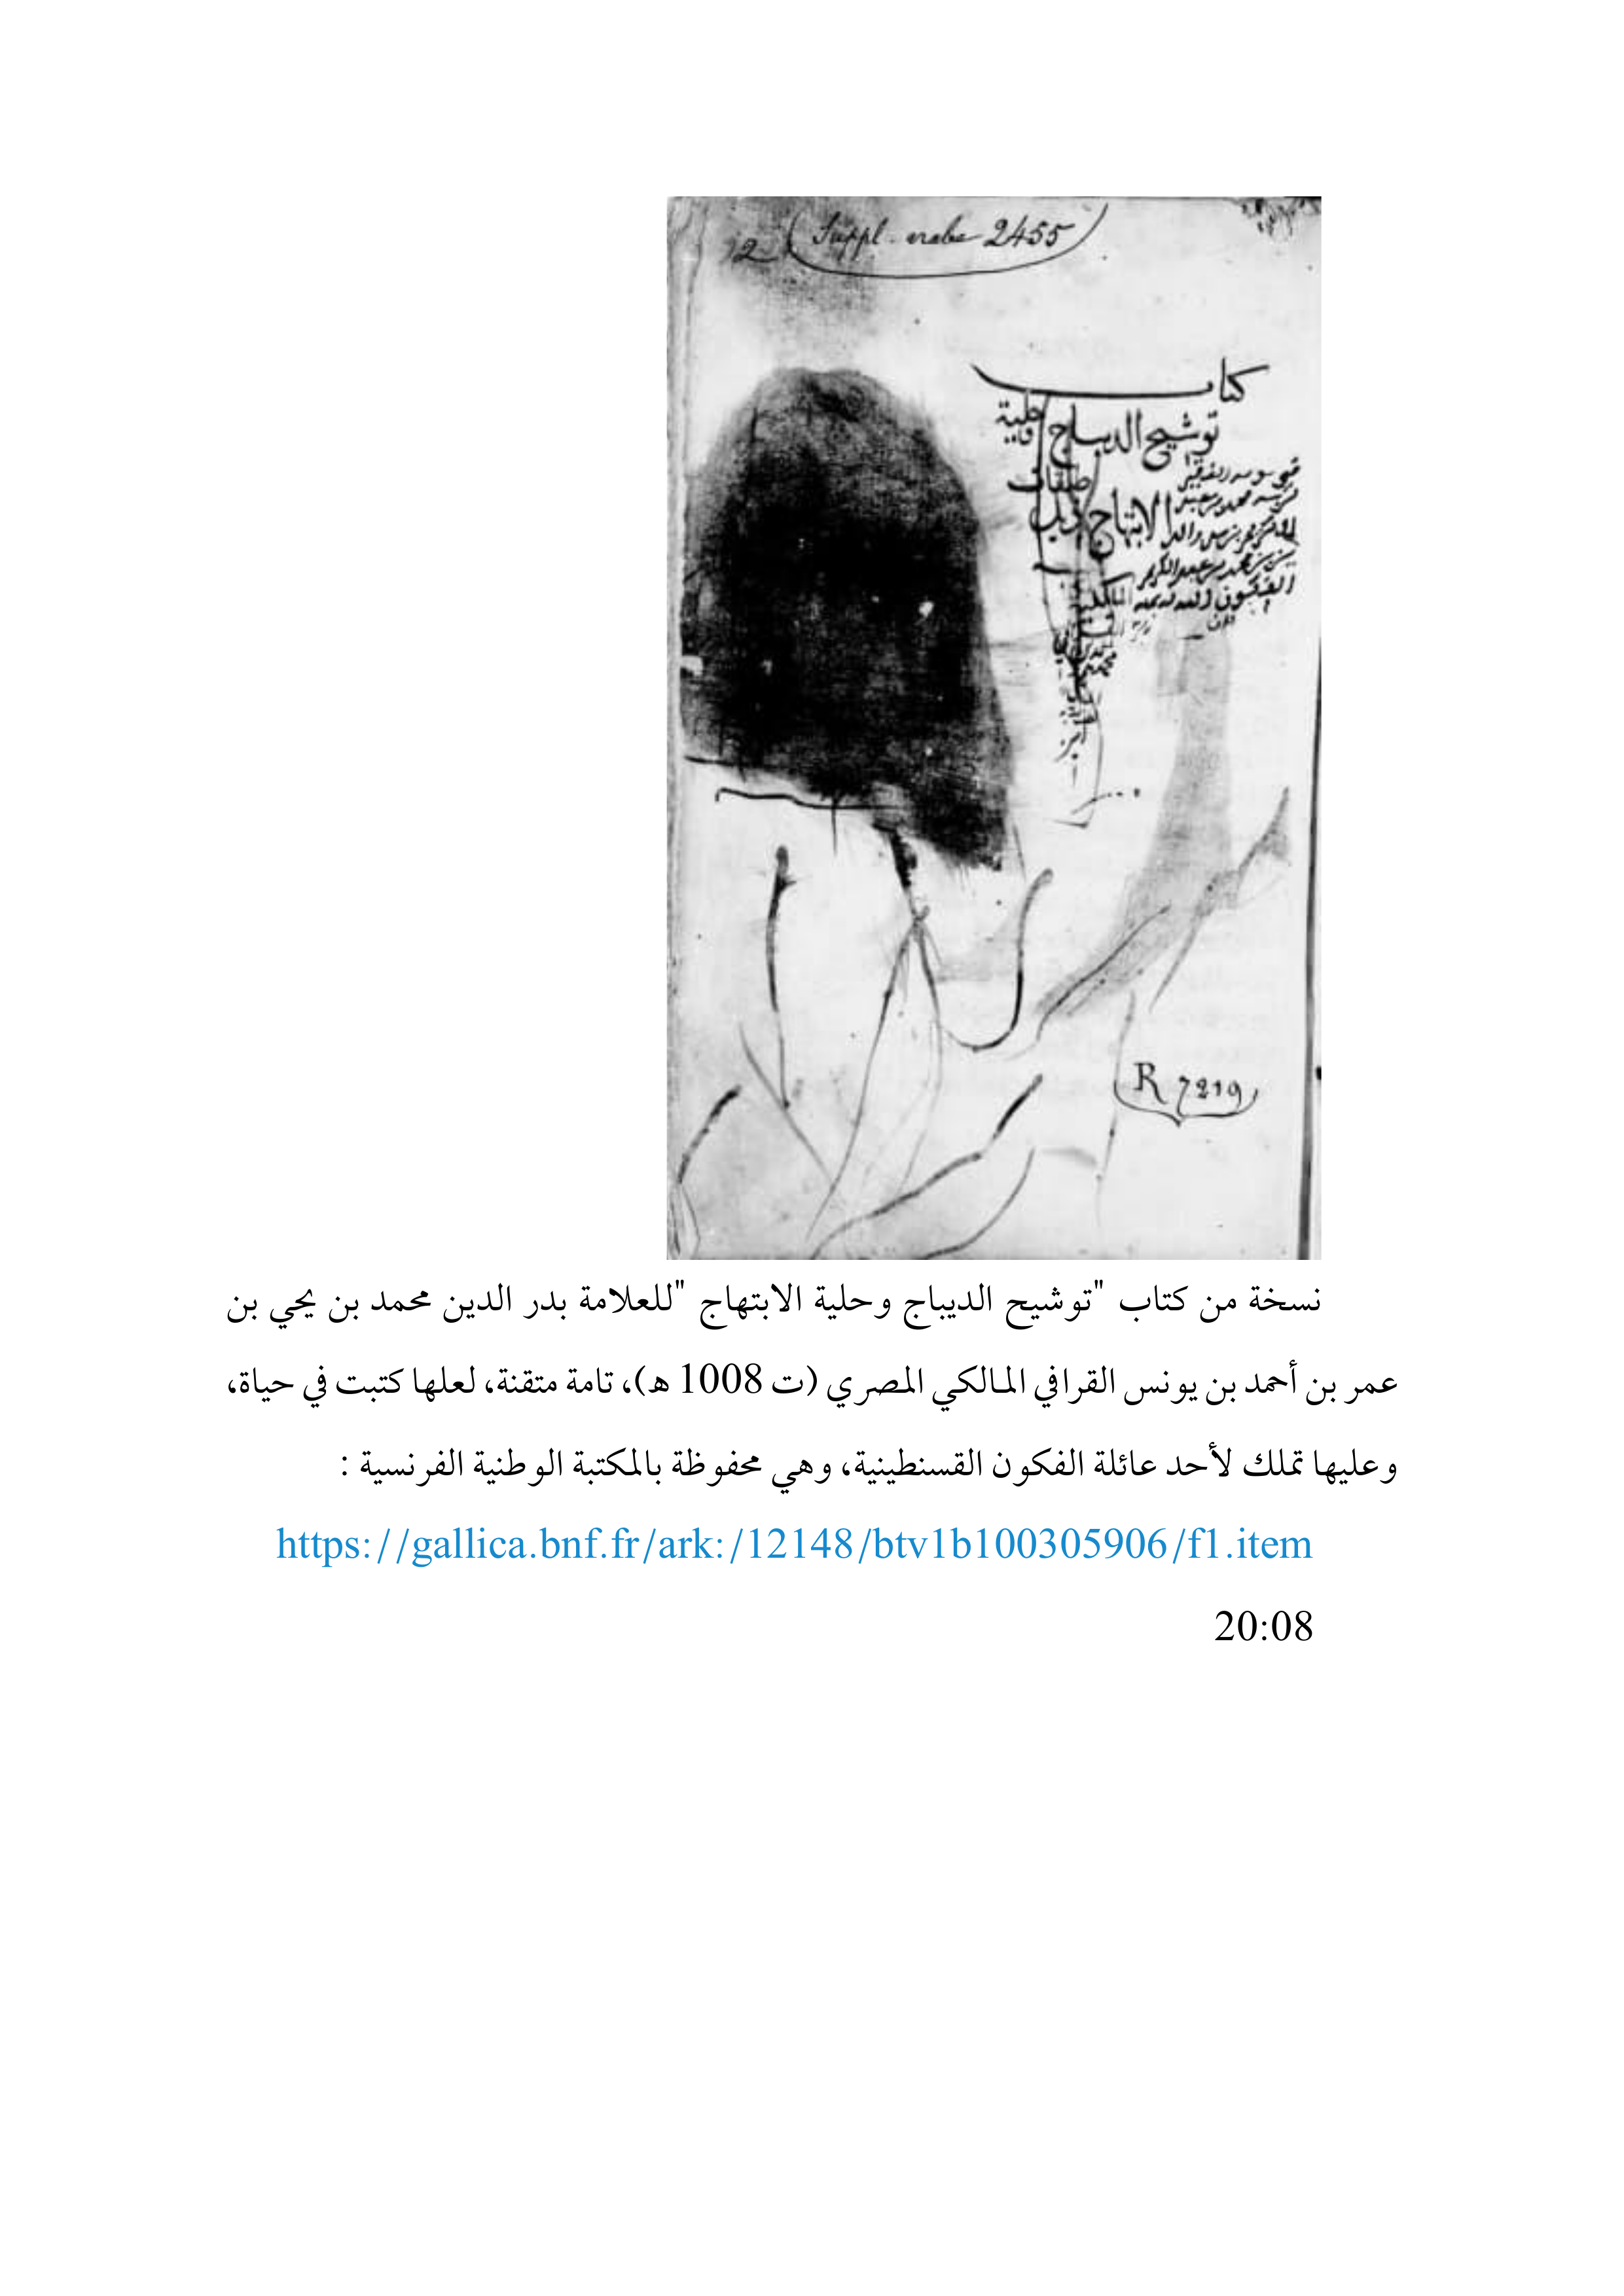 Suppl. arabe 2455
كتاب
توشيح الديباج وحلية
الابتهاج ذيل طبقات
المالكية
محمد بن عبد الكريم
الفكون
R 7219
نسخة من كتاب "توشيح الديباج وحلية الابتهاج "للعلامة بدر الدين محمد بن يحي بن
عمر بن أحمد بن يونس القرافي المالكي المصري (ت 1008 هـ)، تامة متقنة، لعلها كتبت في حياة،
وعليها تملك لأحد عائلة الفكون القسنطينية، وهي محفوظة بالمكتبة الوطنية الفرنسية :
https://gallica.bnf.fr/ark:/12148/btv1b100305906/f1.item
20:08